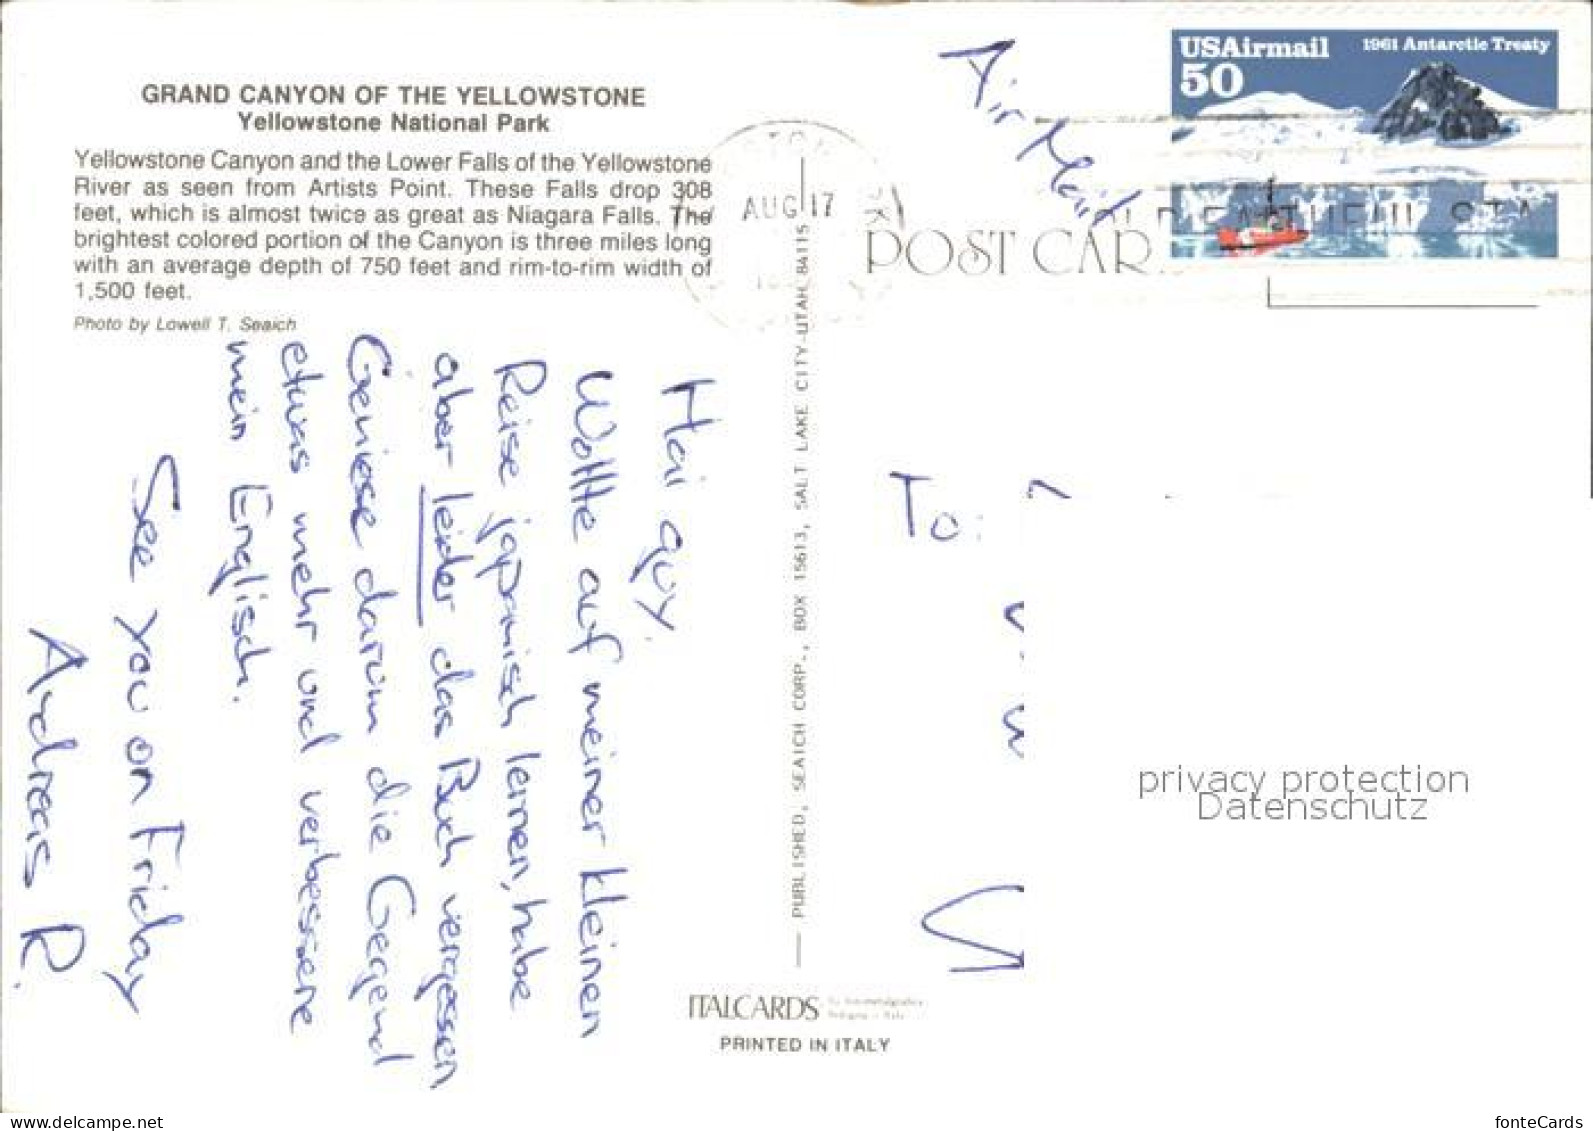 GRAND CANYON OF THE YELLOWSTONE
Yellowstone National Park
Yellowstone Canyon and the Lower Falls of the Yellowstone
River as seen from Artists Point. These Falls drop 308
feet, which is almost twice as great as Niagara Falls. The
brightest colored portion of the Canyon is three miles long
with an average depth of 750 feet and rim-to-rim width of
1,500 feet.
Photo by Lowell T. Seaich
Hai guy.
Wollte auf meiner kleinen
Reise japanisch lernen, habe
aber leider das Buch vergessen
Geniesse darum die Gegend
etwas mehr und verbessere
mein Englisch.
See you on Friday
Andreas R.
AUG 17
PUBLISHED, SEAICH CORP., BOX 15613, SALT LAKE CITY-UTAH 84115
ITALCARDS
PRINTED IN ITALY
Air Mail
USAirmail
50
1961 Antarctic Treaty
POST CAR
To:
privacy protection
Datenschutz
www.delcampe.net
fonteCards